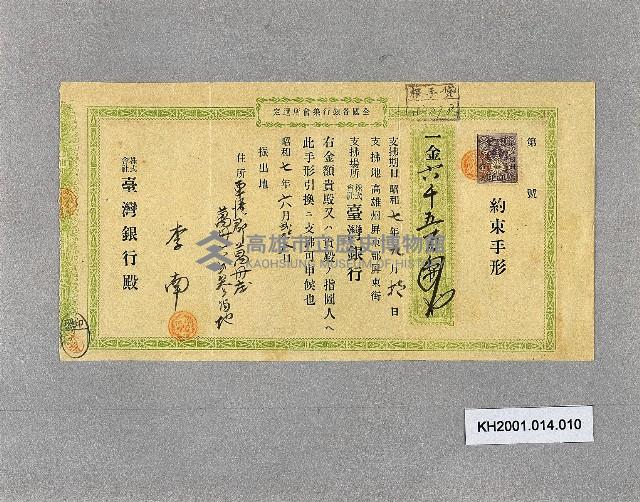 全國各銀行集會所選定
第 號
約束手形
一金六千五百圓也
支拂期日 昭和七年九月 日
支拂地 高雄州屏東郡屏東街
支拂場所 株式會社臺灣銀行
右金額貴殿又ハ貴殿ノ指圖人ヘ
此手形引換ニ支拂可申候也
昭和七年六月 日
振出地
住所 東港郡萬丹庄
萬丹 番地
李南
株式會社臺灣銀行殿
高雄市立歷史博物館
KAOHSIUNG MUSEUM OF HISTORY
KH2001.014.010